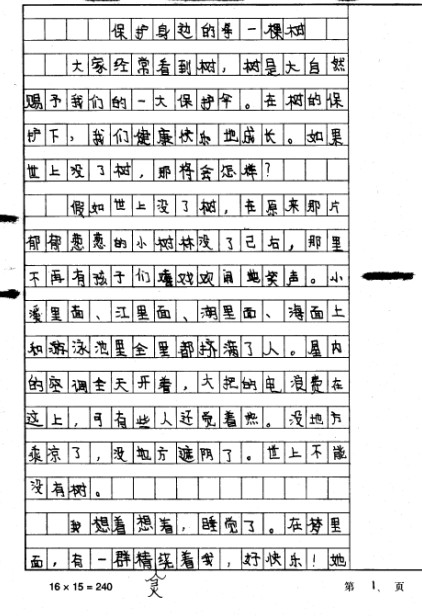 保护身边的每一棵树
大家经常看到树，树是大自然
赐予我们的一大保护伞。在树的保
护下，我们健康快乐地成长。如果
世上没了树，那将会怎样？
假如世上没了树，在原来那片
郁郁葱葱的小树林没了已后，那里
不再有孩子们嘻戏欢闹地笑声。小
溪里面、江里面、湖里面、海面上
和游泳池里全里都挤满了人。屋内
的空调全天开着，大把的电浪费在
这上，可有些人还觉着热。没地方
乘凉了，没地方遮阴了。世上不能
没有树。
我想着想着，睡觉了。在梦里
面，有一群精灵绕着我，好快乐！她
16×15=240
第1、页